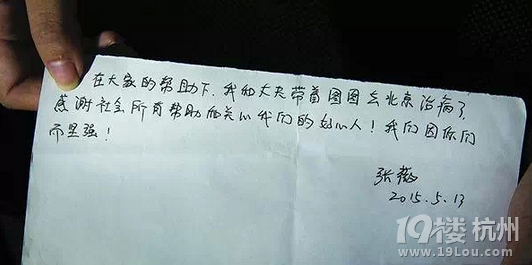 在大家的帮助下，我和丈夫带着圆圆去北京治病了，
感谢社会所有帮助和关心我们的好心人！我们因你们
而坚强！
张薇
2015.5.13
19楼 杭州
www.19lou.com